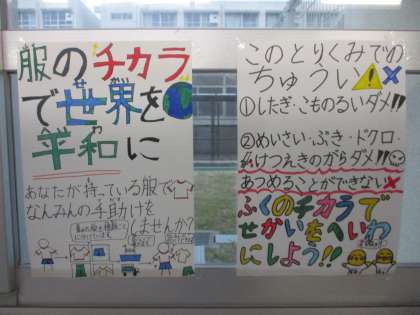 服のチカラ
で世界を
せ かい
平和に
わ
あなたが持っている服で
なんみんの手助けを
しませんか?
このとりくみでの
ちゅうい
①したぎ・こものるいダメ!!
②めいさい・ぶき・ドクロ・
けつえきのがらダメ!!
あつめることができない
ふくのチカラで
せかいをへいわ
にしよう!!